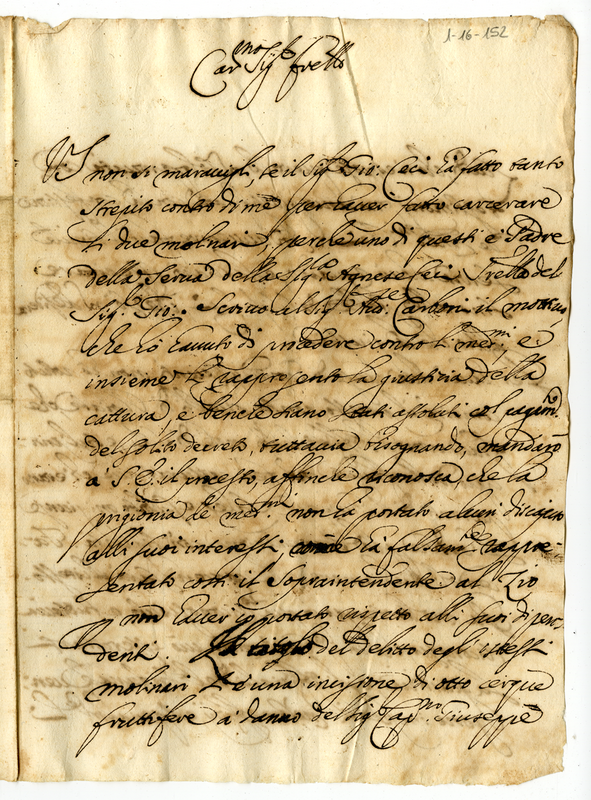 1-16-152
Car.mo Sig.r Frello
VS non si maravigli, se il Sig.r Gio: Ceci hà fatto tanto
strepito contro di mè per haver fatto carcerare
li due molinari, perche uno di questi è Padre
della Serva della Sig.ra Agnese Ceci Frello del
Sig.r Gio: Scrivo al Sig.r Carboni il motivo,
che hò havuto di procedere contro li med.mi, e
insieme le rappresento la giustizia della
cattura, e benche siano stati assoluti col pagam.to
del solito decreto, tuttavia bisognando, mandarò
à S. E. il processo, affinche riconosca, che la
prigionia de med.mi non hà portato alcun discapito
alli suoi interessi, come hà falsam.te rappre-
sentato costì il Sopraintendente al Zio
non haver io portato rispetto alli suoi dipen-
denti. del delitto degl'istessi
molinari è una incisione di otto cerque
fruttifere à danno del Sig.r Giuseppe